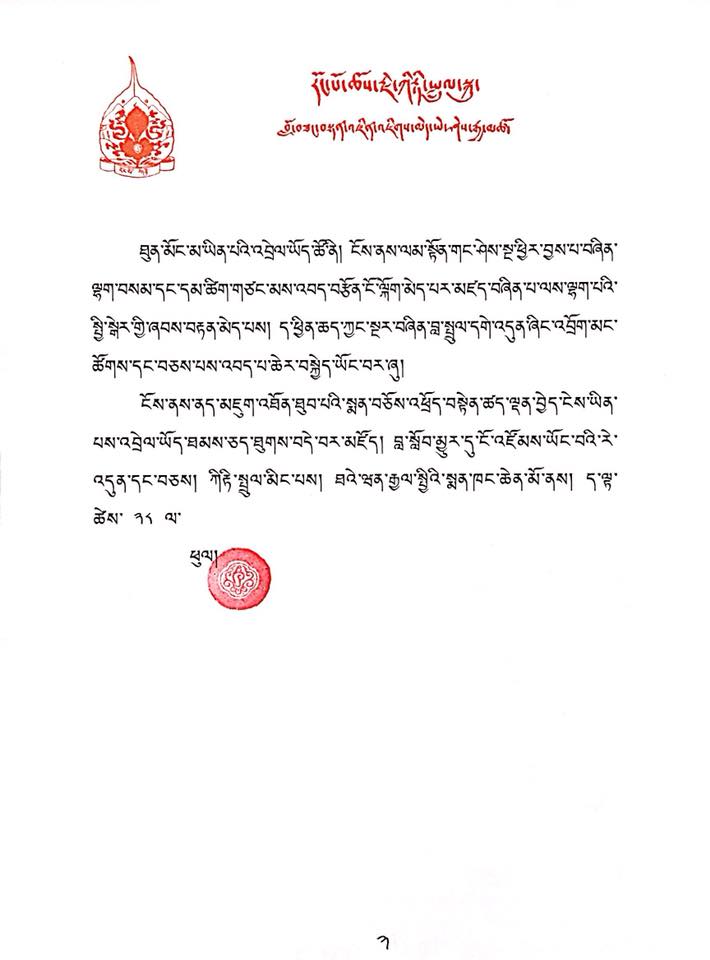 ཐུན་མོང་མ་ཡིན་པའི་འབྲེལ་ཡོད་ཚོ་ནི། ངོས་ནས་ལམ་སྟོན་གང་ཤེས་སྔ་ཕྱིར་བྱས་པ་བཞིན་
ལྷག་བསམ་དང་དམ་ཚིག་གཙང་མས་འབད་བརྩོན་ངོ་ལྐོག་མེད་པར་མཛད་བཞིན་པ་ལས་ལྷག་པའི་
སྤྱི་སྒེར་གྱི་ཞབས་བརྟན་མེད་པས། ད་ཕྱིན་ཆད་ཀྱང་སྔར་བཞིན་བླ་སྤྲུལ་དགེ་འདུན་ཞིང་འབྲོག་མང་
ཚོགས་དང་བཅས་པས་འབད་པ་ཆེར་བསྐྱེད་ཡོང་བར་ཞུ།
ངོས་ནས་ནད་མཇུག་འཐོན་ཐུབ་པའི་སྨན་བཅོས་འཕྲོད་བསྟེན་ཚད་ལྡན་བྱེད་ངེས་ཡིན་
པས་འབྲེལ་ཡོད་ཐམས་ཅད་ཐུགས་བདེ་བར་མཛོད། བླ་སློབ་མྱུར་དུ་ངོ་འཛོམས་ཡོང་བའི་རེ་
འདུན་དང་བཅས། ཀིརྟི་སྤྲུལ་མིང་པས། ཐའེ་ཝན་རྒྱལ་སྤྱིའི་སྨན་ཁང་ཆེན་མོ་ནས། ད་ལྟ་
ཚེས་ ༢༨ ལ་
ཕུལ།
༡